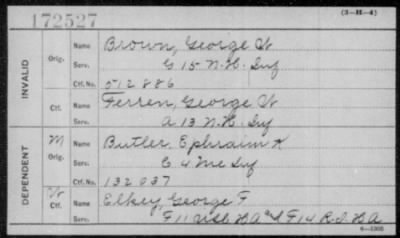 172527 (3-H-4)
INVALID
Orig. Name Brown, George W
Serv. G 15 N.H. Inf
Ctf. No. 512886
Ctf. Name Ferren, George W
Serv. A 13 N.H. Inf
DEPENDENT
M Orig. Name Butler, Ephraim K
Serv. C 4 Me Inf
Ctf. No. 132037
W Ctf. Name Elkey, George F
Serv. F 11 USC HA and F 14 R.I. HA